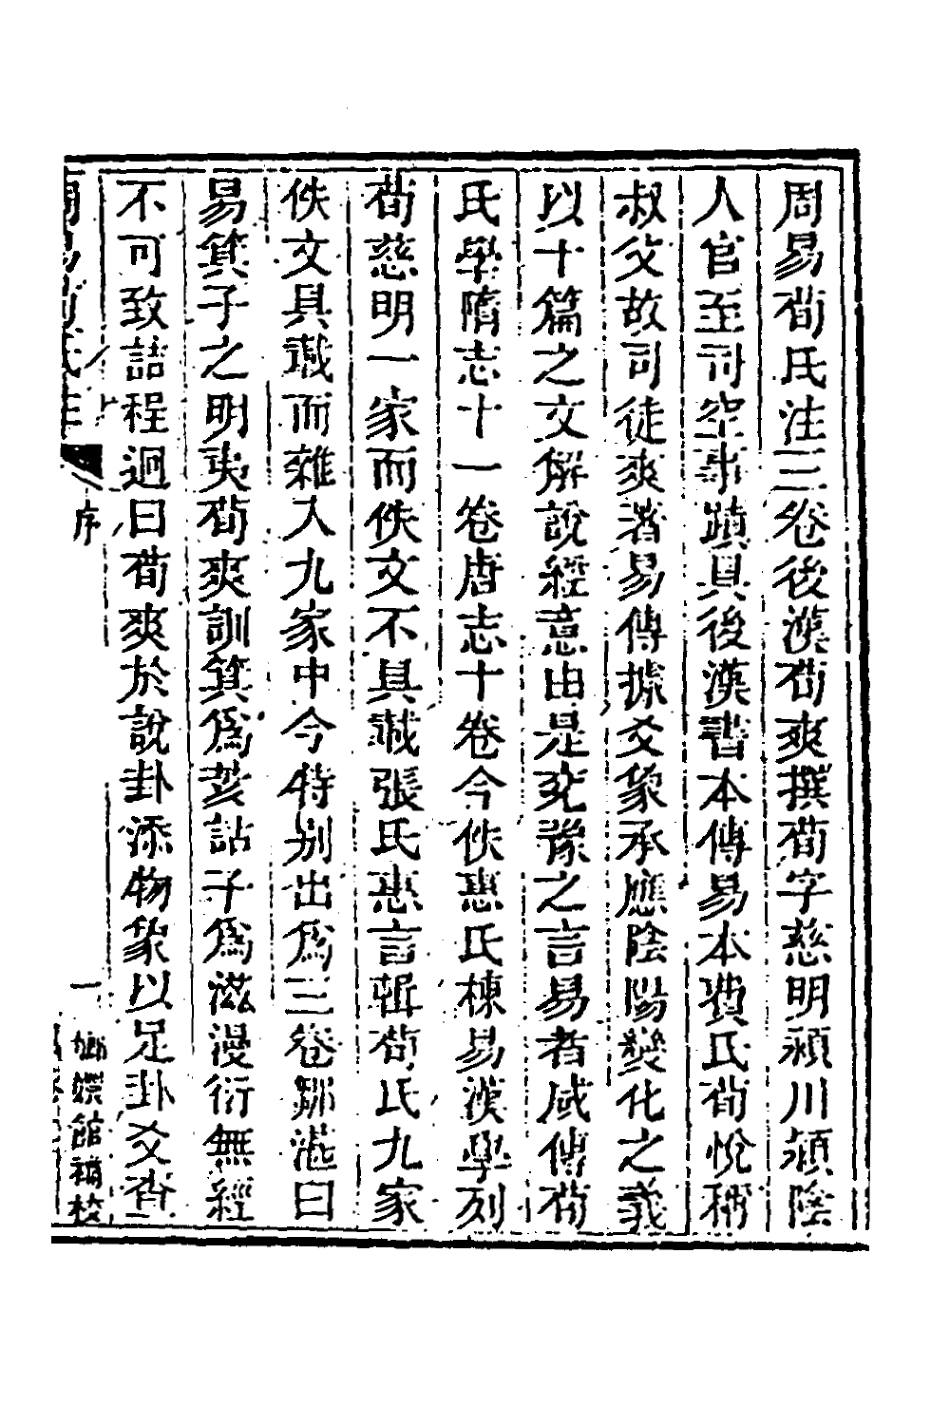 周易荀氏注三卷後漢荀爽撰荀字慈明潁川潁陰
人官至司空事蹟具後漢書本傳易本費氏荀悅稱
叔父故司徒爽著易傳據爻象承應陰陽變化之義
以十篇之文解說經意由是兗豫之言易者咸傳荀
氏學隋志十一卷唐志十卷今佚惠氏棟易漢學列
荀慈明一家而佚文不具載張氏惠言輯荀氏九家
佚文具載而雜入九家中今特別出為三卷鄒湛曰
易箕子之明夷荀爽訓箕為荄詁子為滋漫衍無經
不可致詰程迥曰荀爽於說卦添物象以足卦爻查
周易荀氏注
序
一
嫏嬛館補校